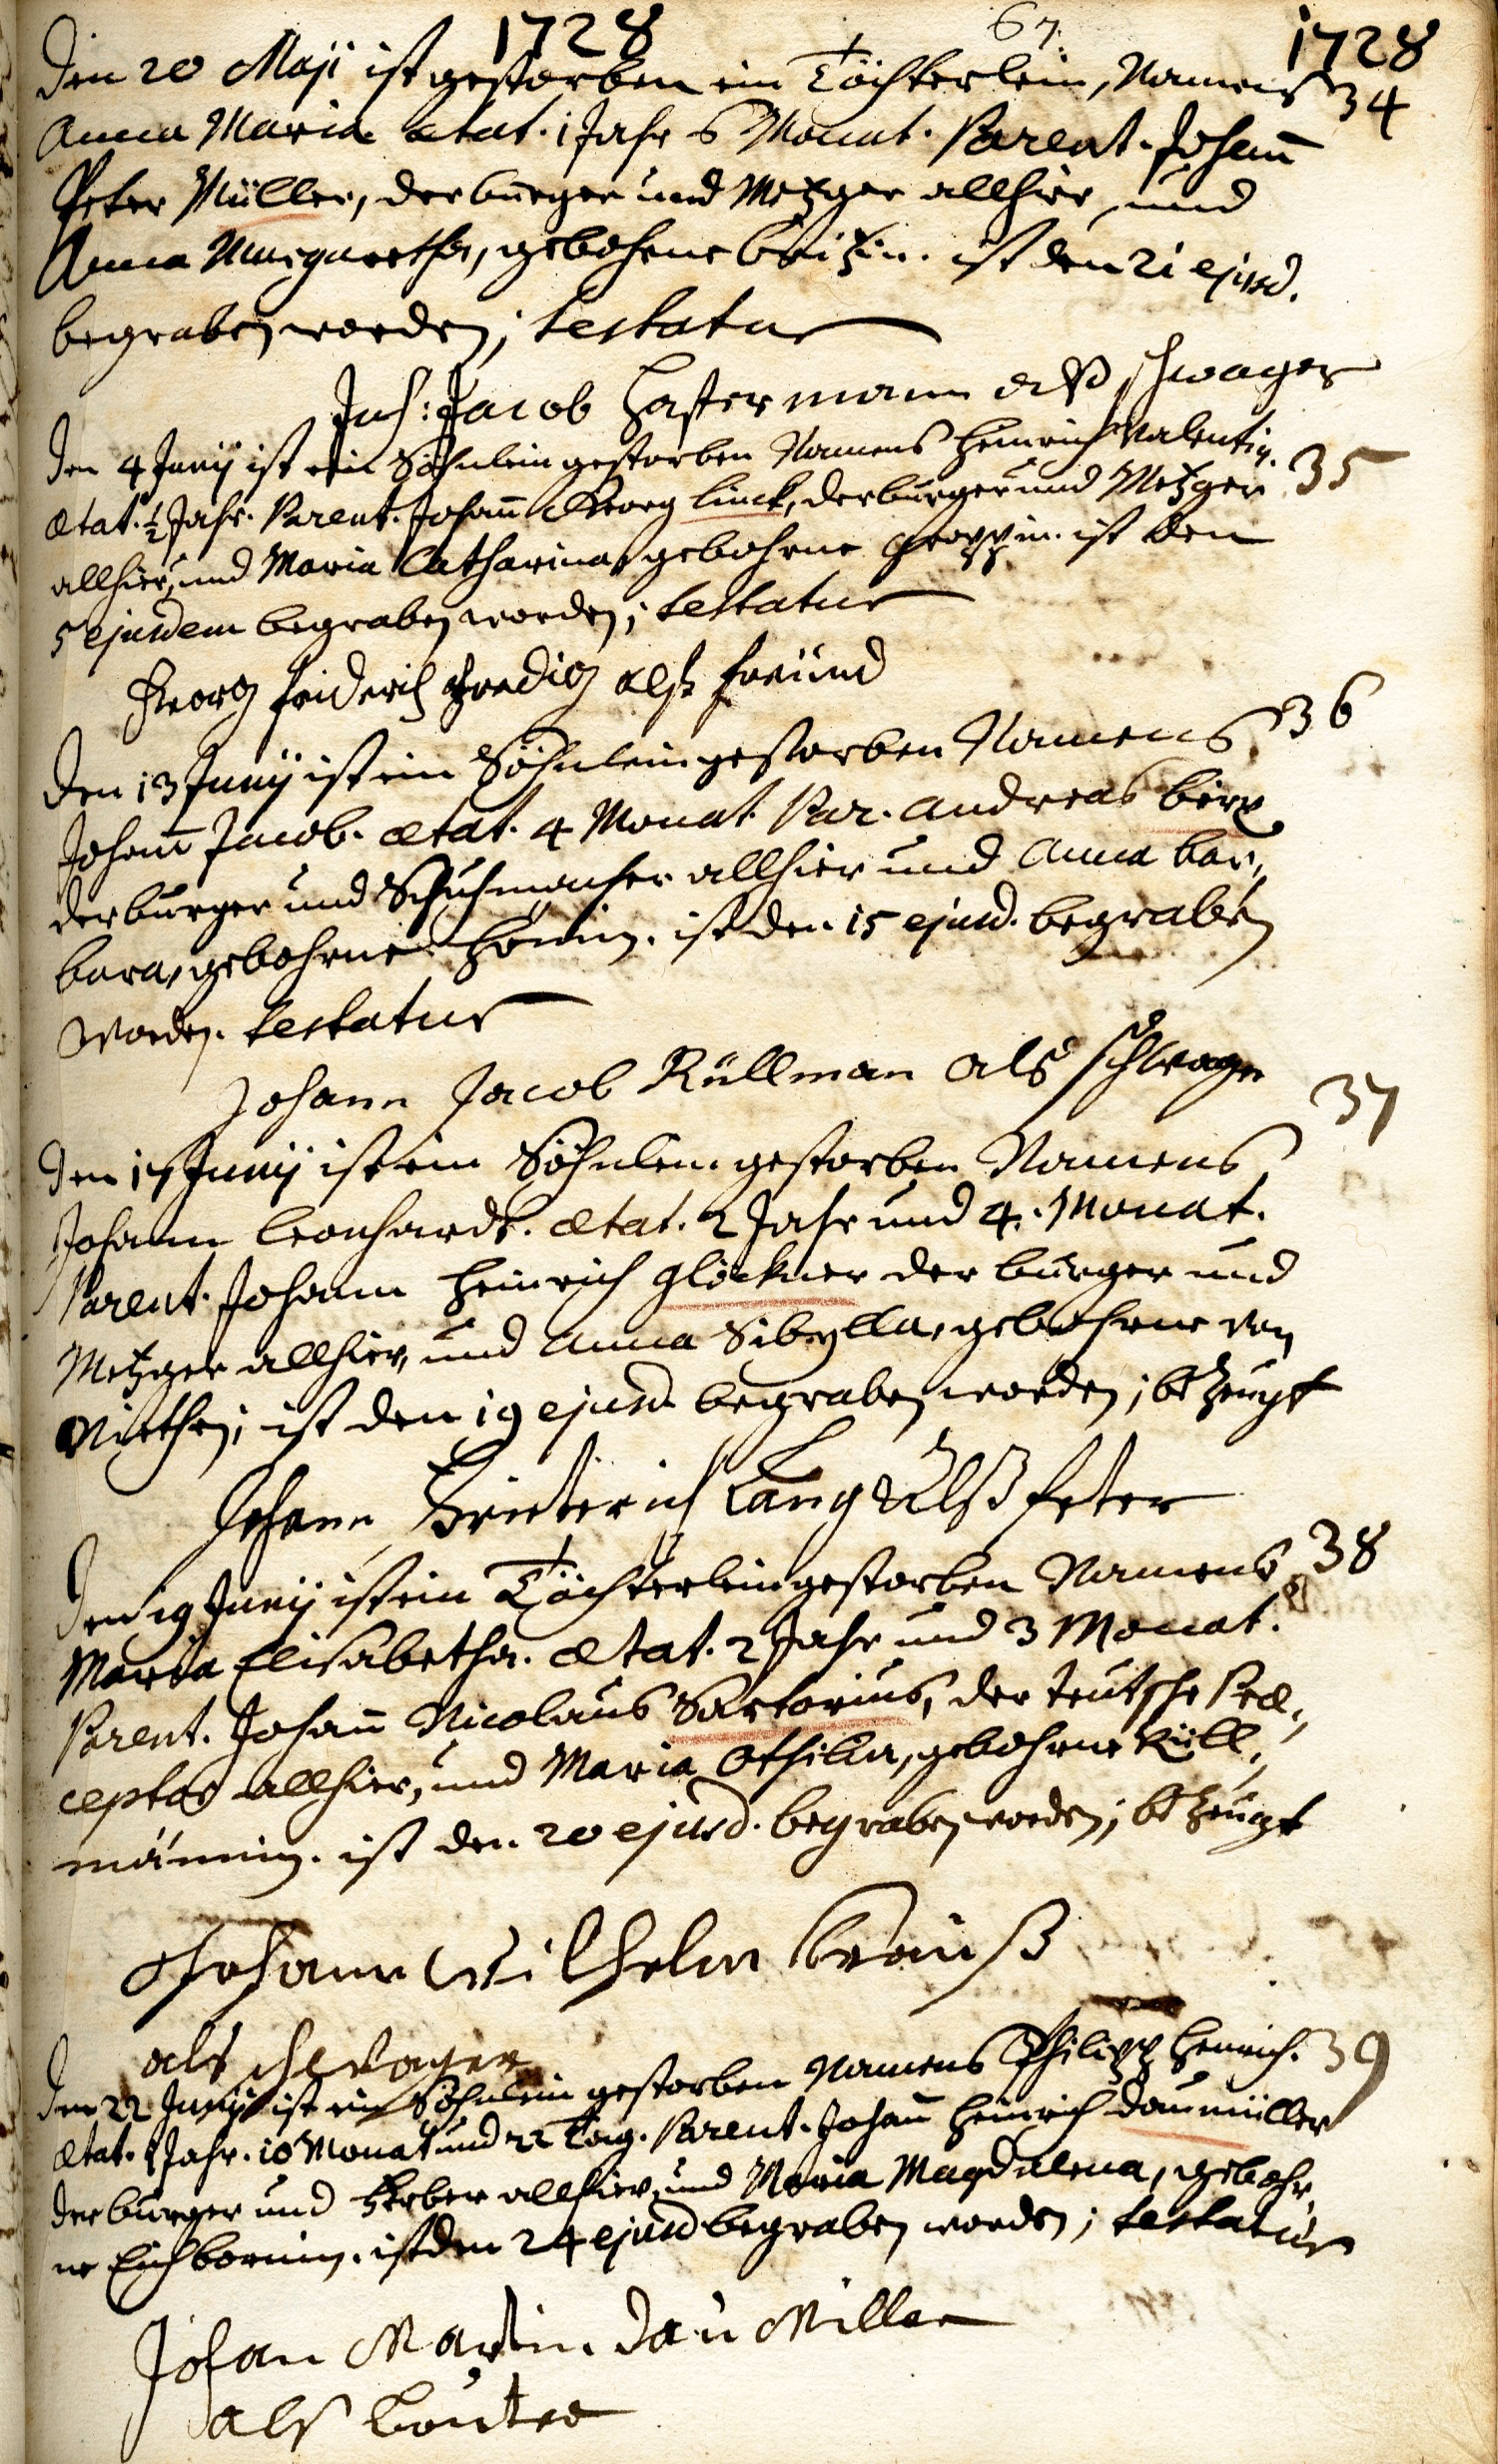 1728 67. 1728
Den 20 Maji ist gestorben ein Töchterlein, Namens 34
Anna Maria ætat. 1 Jahr 6 Monat. Parent. Johañ
Peter Müller, der burger und Metzger allhier, und
Anna Margaretha, gebohrne ist den 21 ejusd.
begraben worden; testatur
Joh: Jacob Hastermann alß schwager
Den 4 Junij ist ein Söhnlein gestorben Namens Heinrich Valentin. 35
ætat. ½ Jahr. Parent. Johañ Georg Linck, der burger und Metzger
allhier, und Maria Catharina, gebohrne ist den
5 ejusdem begraben worden; testatur
Georg Friderich alß freünd
Den 13 Junij ist ein Söhnlein gestorben Namens 36
Johañ Jacob. ætat. 4 Monat. Par. Andreas
der burger und Schuhmacher allhier und Anna Bar,,
bara, gebohrne ist den 15 ejusd. begraben
worden. testatur
Johann Jacob Rüllman als schwager
Den 17 Junij ist ein Söhnlein gestorben Namens 37
Johann Leonhardt. ætat. 2 Jahr und 4. Monat.
Parent. Johann Heinrich Glöckner der burger und
Metzger allhier, und Anna Sibylla, gebohrne von
ist den 19 ejusd. begraben worden; bezeugt
Johann Lang Alß
Den 19 Junij ist ein Töchterlein gestorben Namens 38
Maria Elisabetha. ætat. 2 Jahr und 3 Monat.
Parent. Johañ Nicolaus Sartorius, der teutsche Præ,,
ceptor allhier, und Maria Othilia, gebohrne Rüll,,
männin. ist den 20 ejusd. begraben worden; bezeugt
Johann Wilhelm Krauß
als schwager
Den 22 Junij ist ein Söhnlein gestorben Namens Philipp Henrich. 39
ætat. 1 Jahr. 10 Monat und 22 Tag. Parent. Johañ Heinrich Daumüller
der burger und allhier, und Maria Magdalena, gebohr,,
ne Eichbornin. ist den 24 ejusd begraben worden; testatur
Johan Martin Dau Miller
als